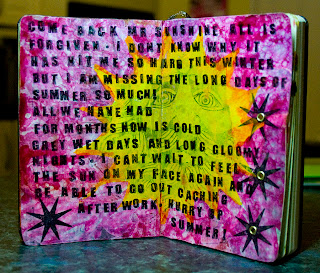 COME BACK MR SUNSHINE, ALL IS
FORGIVEN. I DON'T KNOW WHY IT
HAS HIT ME SO HARD THIS WINTER
BUT I AM MISSING THE LONG DAYS OF
SUMMER SO MUCH!
ALL WE HAVE HAD
FOR MONTHS NOW IS COLD
GREY WET DAYS AND LONG GLOOMY
NIGHTS. I CANT WAIT TO FEEL
THE SUN ON MY FACE AGAIN AND
BE ABLE TO GO OUT CACHING
AFTER WORK. HURRY UP
SUMMER!